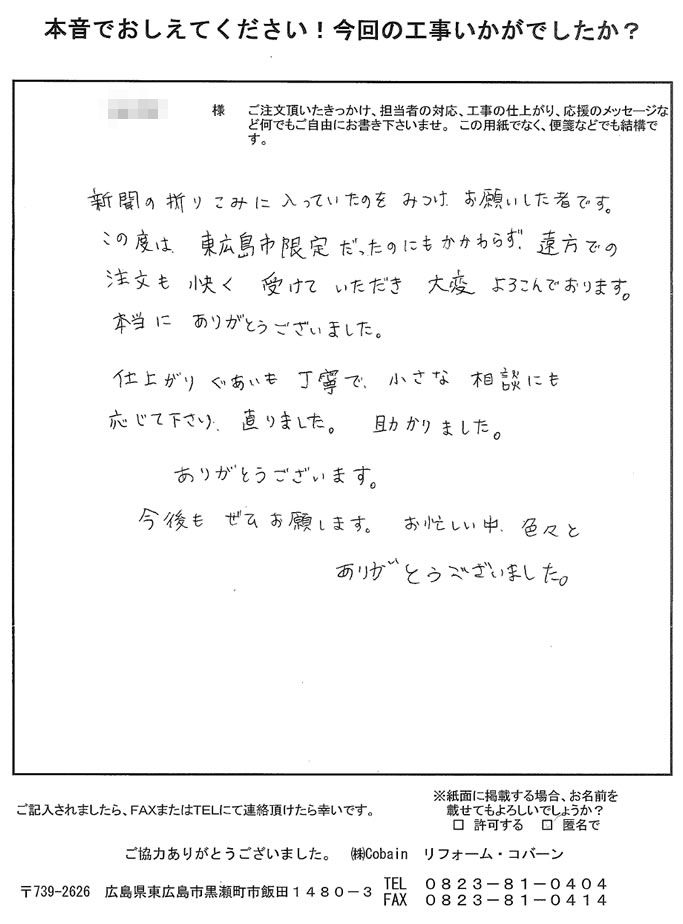 本音でおしえてください！今回の工事いかがでしたか？
様
ご注文頂いたきっかけ、担当者の対応、工事の仕上がり、応援のメッセージな
ど何でもご自由にお書き下さいませ。この用紙でなく、便箋などでも結構で
す。
新聞の折りこみに入っていたのをみつけ お願いした者です。
この度は、東広島市限定だったのにもかかわらず、遠方での
注文も快く受けていただき大変よろこんでおります。
本当にありがとうございました。
仕上がりぐあいも丁寧で、小さな相談にも
応じて下さり、直りました。助かりました。
ありがとうございます。
今後もぜひお願します。お忙しい中、色々と
ありがとうございました。
ご記入されましたら、FAXまたはTELにて連絡頂けたら幸いです。
※紙面に掲載する場合、お名前を
載せてもよろしいでしょうか？
□ 許可する □ 匿名で
ご協力ありがとうございました。 ㈱Cobain リフォーム・コバーン
〒739-2626 広島県東広島市黒瀬町市飯田１４８０－３
TEL ０８２３－８１－０４０４
FAX ０８２３－８１－０４１４